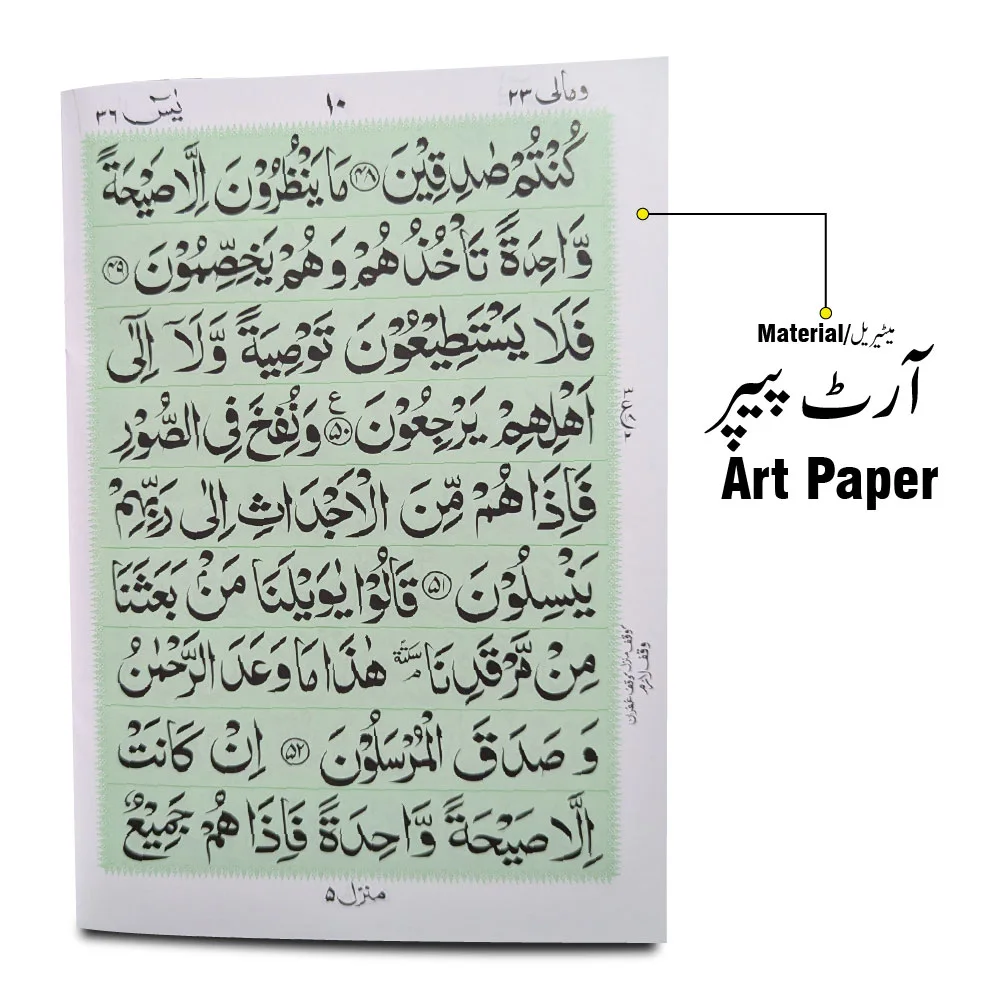 وما لی ۲۳
۱۰
یٰسٓ ۳۶
كُنْتُمْ صٰدِقِيْنَ ۴۸ مَا يَنْظُرُوْنَ اِلَّا صَيْحَةً
وَّاحِدَةً تَاْخُذُهُمْ وَهُمْ يَخِصِّمُوْنَ ۴۹
فَلَا يَسْتَطِيْعُوْنَ تَوْصِيَةً وَّلَاۤ اِلٰۤى
اَهْلِهِمْ يَرْجِعُوْنَ ۵۰ ع وَنُفِخَ فِى الصُّوْرِ
فَاِذَا هُمْ مِّنَ الْاَجْدَاثِ اِلٰى رَبِّهِمْ
يَنْسِلُوْنَ ۵۱ قَالُوْا يٰوَيْلَنَا مَنْۢ بَعَثَنَا
مِنْ مَّرْقَدِنَا سكتة م هٰذَا مَا وَعَدَ الرَّحْمٰنُ
وَ صَدَقَ الْمُرْسَلُوْنَ ۵۲ اِنْ كَانَتْ
اِلَّا صَيْحَةً وَّاحِدَةً فَاِذَا هُمْ جَمِيْعٌ
وقف لازم
وقف منزل وقف غفران
منزل ۵
Material/میٹیریل
آرٹ پیپر
Art Paper